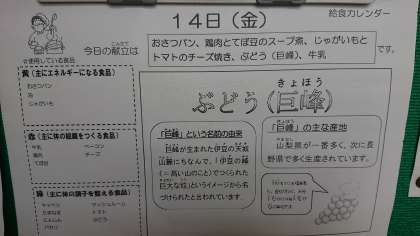 給食カレンダー
14日（金）
こんだて
今日の献立は
おさつパン、鶏肉とてぼ豆のスープ煮、じゃがいもと
トマトのチーズ焼き、ぶどう（巨峰）、牛乳
です。
☆使用している食品
黄（主にエネルギーになる食品）
おさつパン
じゃがいも
赤（主に体の組織をつくる食品）
牛乳 ベーコン
鶏肉 チーズ
てぼ豆
緑（主に体の調子を整える食品）
キャベツ マッシュルーム
たまねぎ トマト
にんじん ぶどう
パセリ
きょほう
ぶどう（巨峰）
「巨峰」という名前の由来
巨峰が生まれた伊豆の天城
山麓にちなんで、「伊豆の峰
（＝高い山のこと）でつくられた
巨大な粒」というイメージから名
づけられたと言われています。
「巨峰」の主な産地
山梨県が一番多く、次に長
野県で多く生産されています。